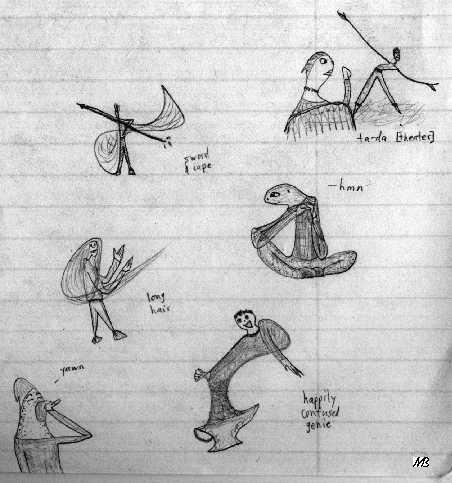 ta-da [theater]
sword
& cape
-hmn
long
hair
yawn
happily
confused
genie
MB